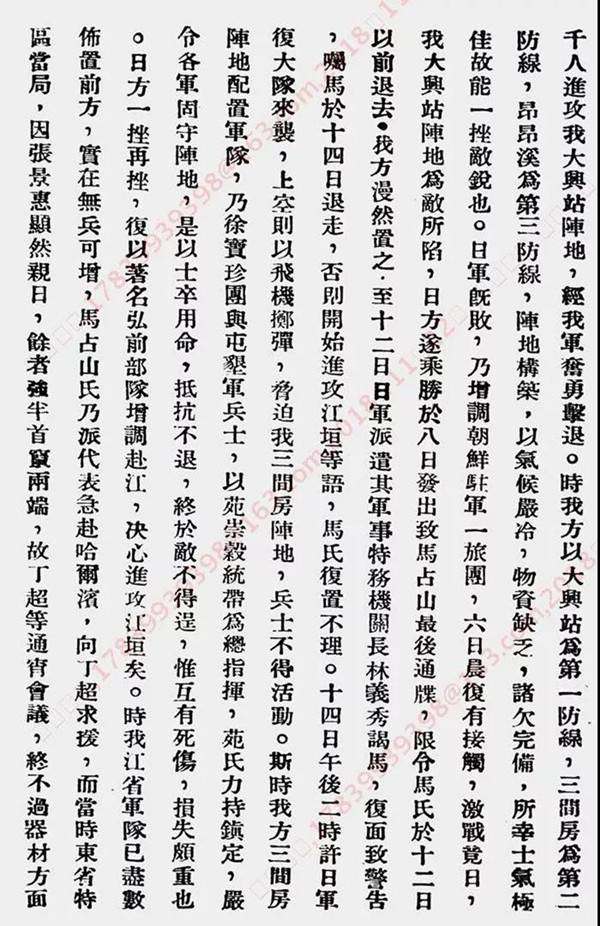 千人進攻我大興站陣地，經我軍奮勇擊退。時我方以大興站爲第一防線，三間房爲第二
防線，昂昂溪爲第三防線，陣地構築，以氣候嚴冷，物資缺乏，諸欠完備，所幸士氣極
佳故能一挫敵銳也。日軍旣敗，乃增調朝鮮駐軍一旅團，六日晨復有接觸，激戰竟日，
我大興站陣地爲敵所陷，日方遂乘勝於八日發出致馬占山最後通牒，限令馬氏於十二日
以前退去。我方漫然置之。至十二日日軍派遣其軍事特務機關長林義秀謁馬，復面致警告
，囑馬於十四日退走，否則開始進攻江垣等語，馬氏復置不理。十四日午後二時許日軍
復大隊來襲，上空則以飛機擲彈，脅迫我三間房陣地，兵士不得活動。斯時我方三間房
陣地配置軍隊，乃徐寶珍團與屯墾軍兵士，以苑崇穀統帶爲總指揮，苑氏力持鎭定，嚴
令各軍固守陣地，是以士卒用命，抵抗不退，終於敵不得逞，惟互有死傷，損失頗重也
。日方一挫再挫，復以著名弘前部隊增調赴江，决心進攻江垣矣。時我江省軍隊已盡數
佈置前方，實在無兵可增，馬占山氏乃派代表急赴哈爾濱，向丁超求援，而當時東省特
區當局，因張景惠顯然親日，餘者強半首竄兩端，故丁超等通宵會議，終不過器材方面